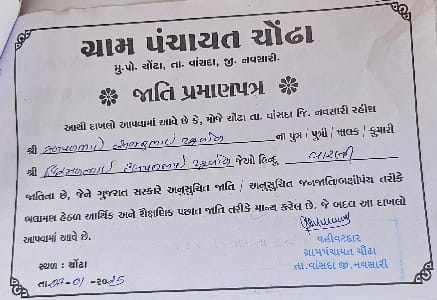 ગ્રામ પંચાયત ચોંઢા
મુ.પો. ચોંઢા, તા. વાંસદા, જી. નવસારી.
જાતિ પ્રમાણપત્ર
આથી દાખલો આપવામાં આવે છે કે, મોજે ચોંઢા તા. વાંસદા જિ. નવસારી રહીશ
શ્રી ના પુત્ર / પુત્રી / પાલક / કુમારી
શ્રી જેઓ હિન્દુ
જાતિના છે, જેને ગુજરાત સરકારે અનુસુચિત જાતિ / અનુસુચિત જનજાતિ/બક્ષીપંચ તરીકે
ભલામણ હેઠળ આર્થિક અને શૈક્ષણિક પછાત જાતિ તરીકે માન્ય કરેલ છે. જે બદલ આ દાખલો
આપવામાં આવે છે.
વહીવટદાર
ગ્રામપંચાયત ચોંઢા
તા.વાંસદા જી.નવસારી
સ્થળ : ચોંઢા
તા.